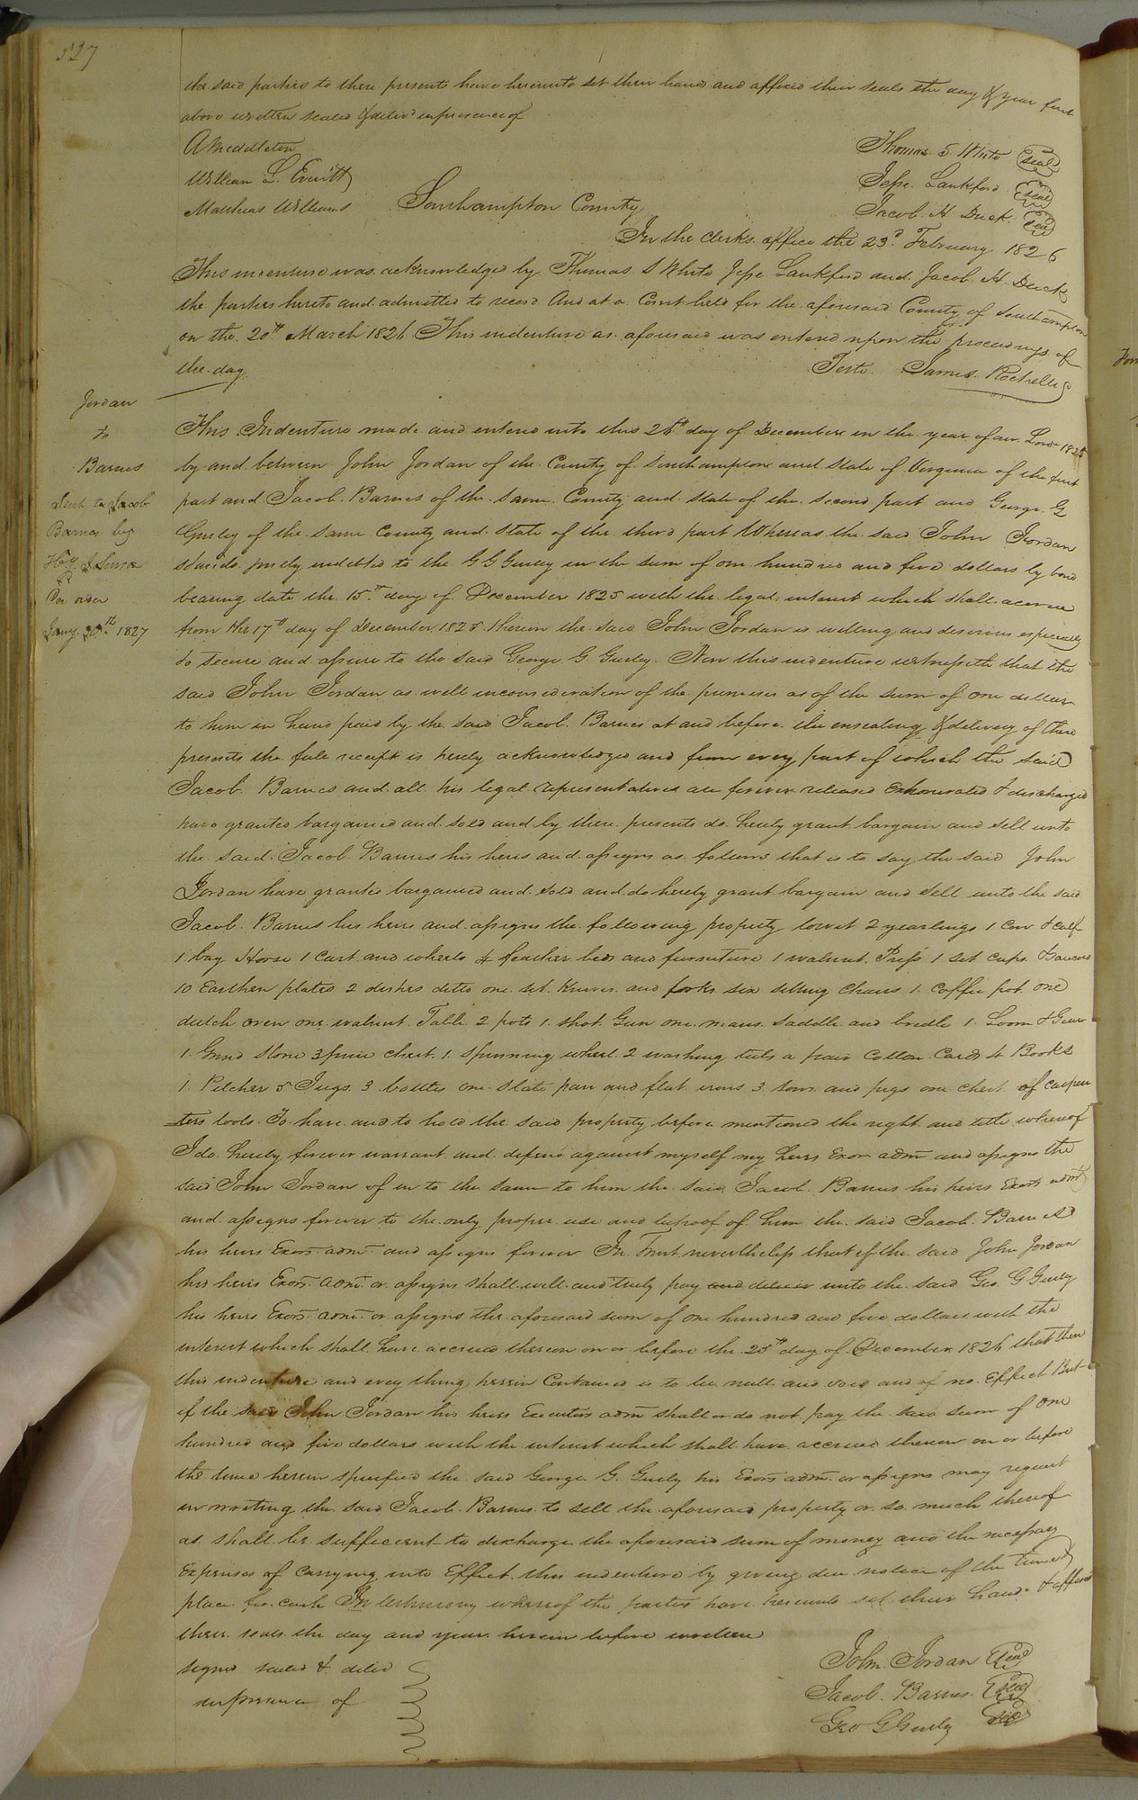 527
the said parties to these presents have hereunto set their hand and affixed their seals the day & year first
above written sealed & deliv'd in presence of
A Middleton
Thomas S White (seal)
William L. Everitt
Jesse Lankford (seal)
Matthias Williams
Jacob H Duck (seal)
Southampton County
In the clerks office the 23d February 1826
This indenture was acknowledged by Thomas S White Jesse Lankford and Jacob H Duck
the parties hereto and admitted to record And at a Court held for the aforesaid County of Southampton
on the 20th March 1826 This indenture as aforesaid was entered upon the proceedings of
the day.
Teste James Rochelle
Jordan
to
Barnes
Sent to Jacob
Barnes by
Per order
Jany 30th 1827
This Indenture made and entered into this 26th day of December in the year of our Lord 1825
by and between John Jordan of the County of Southampton and State of Virginia of the first
part and Jacob Barnes of the same County and state of the second part and George G
Gurley of the same County and State of the third part Whereas the said John Jordan
stands justly indebted to the G G Gurley in the sum of one hundred and five dollars by bond
bearing date the 15th day of December 1825 with the legal interest which shall accrue
from the 17th day of December 1825 therein the said John Jordan is willing and desirious especially
to secure and assure to the said George G. Gurley. Now this indenture witnesseth that the
said John Jordan as well in consideration of the premises as of the sum of one dollar
to him in hand paid by the said Jacob Barnes at and before the ensealing & delivery of these
presents the full receipt is hereby acknowledged and from every part of which the said
Jacob Barnes and all his legal representatives are forever released exhonerated & discharged
have granted bargained and sold and by these presents do hereby grant bargain and sell unto
the said Jacob Barnes his heirs and assigns as follows that is to say the said John
Jordan have granted bargained and sold and do hereby grant bargain and sell unto the said
Jacob Barnes his heirs and assigns the following property towit 2 yearlings 1 Cow & calf
1 bay Horse 1 Cart and wheels 4 feather beds and furniture 1 walnut Press 1 set cups & saucers
10 Earthen plates 2 dishes ditto one set Knives and forks six setting Chairs 1 Coffee pot one
dutch oven one walnut Table 2 pots 1 shot Gun one mans saddle and bridle 1 Loom & Gear
1 Grind stone 3 pine chest 1 spinning wheel 2 washing tubs a pair Cotton Cards 4 Books
1 Pitcher 5 Jugs 3 bottles one slate pan and flat irons 3 sows and pigs one chest of carpen
ters tools To have and to hold the said property before mentioned the right and title whereof
I do hereby forever warrant and defend against myself my heirs Exors adm and assigns the
said John Jordan of in to the same to him the said Jacob Barnes his heirs Exors adm
and assigns forever to the only proper use and behoof of him the said Jacob Barnes
his heirs Exors adm and assigns forever In Trust nevertheless that if the said John Jordan
his heirs Exors adm or assigns shall well and truly pay and deliver unto the said Geo G Gurley
his heirs Exors adm or assigns the aforesaid sum of one hundred and five dollars with the
interest which shall have accrued thereon on or before the 25th day of December 1826 that then
this indenture and every thing herein Contained is to be null and void and of no Effect But
if the said John Jordan his heirs Executors adm shall or do not pay the said sum of One
hundred and five dollars with the interest which shall have accrued thereon on or before
the time herein specified the said George G. Gurley his Exors adm or assigns may request
in writing the said Jacob Barnes to sell the aforesaid property or so much thereof
as shall be sufficient to discharge the aforesaid sum of money and the necessary
Expenses of Carrying into Effect this indenture by giving due notice of the time &
place for cash In testimony whereof the parties have hereunto set their hands & affixed
their seals the day and year herein before written
signed sealed & deliv'd
in presence of
John Jordan (seal)
Jacob Barnes (seal)
Geo G Gurley (seal)